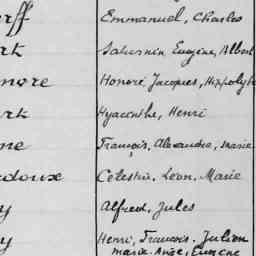 erff Emmanuel, Charles
rk Saturnin, Eugène, Albert
nore Honoré, Jacques, Hippolyte
ark Hyacinthe, Henri
ne François, Alexandre, Marie
doux Célestin, Léon, Marie
y Alfred, Jules
y Henri, François, Julien
Marie-Ange, Eugène